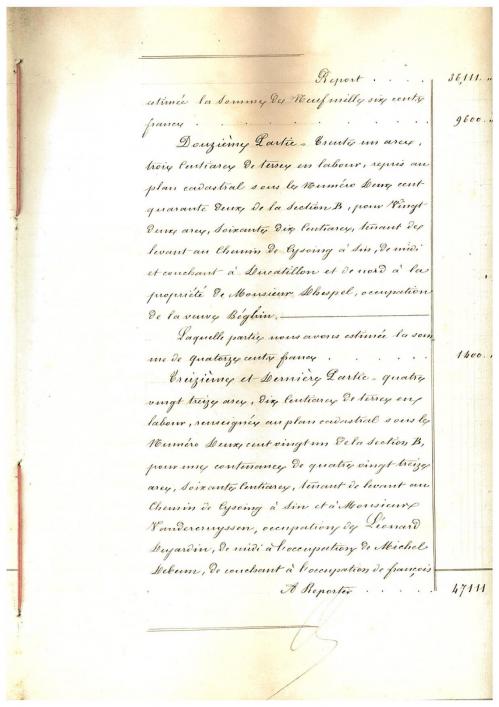 Report . . . . 36,111 "
estimée la somme de Neuf mille six cents
francs . . . . . . . . . . 9600 "
Douzième Partie - Trente un ares,
trois centiares de terres en labour, repris au
plan cadastral sous le Numéro Deux cent
quarante deux de la section B, pour Vingt
deux ares, soixante dix centiares, tenant de
levant au Chemin de Cysoing à Sin, de midi
et couchant à Ducatillon et de nord à la
propriété de Monsieur Dhespel, occupation
de la veuve Béghin.
Laquelle partie nous avons estimée la som-
me de quatorze cents francs . . . . . 1400 "
Treizième et Dernière Partie - quatre
vingt treize ares, dix centiares de terres en
labour, renseignée au plan cadastral sous le
Numéro Deux cent vingt un de la section B,
pour une contenance de quatre vingt treize
ares, soixante centiares, tenant de levant au
Chemin de Cysoing à Sin et à Monsieur
Vandercruyssen, occupation de Léonard
Dujardin, de midi à l'occupation de Michel
Debum, de couchant à l'occupation de françois
A Reporter . . . . . 47111